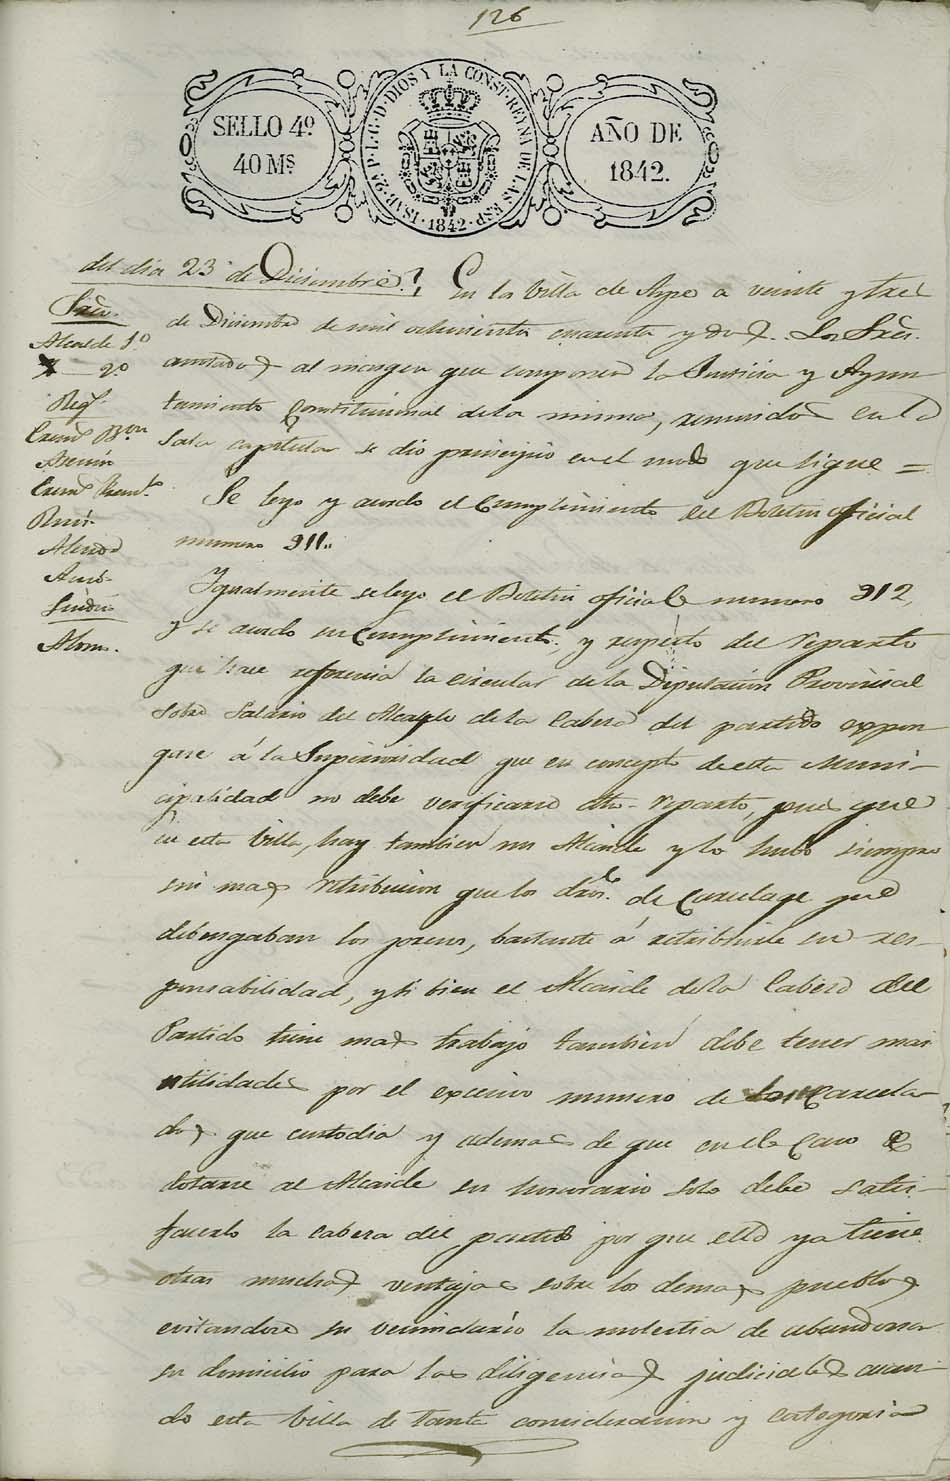 126
SELLO 4º
40 Ms
ISAB. 2ª P. L. G. D. DIOS Y LA CONST. REYNA DE LAS ESP.
1842
AÑO DE
1842.
del dia 23 de Diciembre
Sres.
Alcalde 1º
2º
Reg.
Asensio
Ruiz
En la Villa de Aspe a veinte y tres
de Diciembre de mil ochocientos cuarenta y dos. Los Sres.
anotados al margen que componen la Justicia y Ayun-
tamiento Constitucional de la misma, reunidos en la
Sala capitular se dio principio en el modo que sigue =
Se leyo y acordo el Cumplimiento del Boletin oficial
numero 311..
Igualmente se leyo el Boletin oficial numero 312,
y se acordo su Cumplimiento. y respecto del reparto
que hace referencia la circular de la Diputacion Provincial
sobre Salario del Alcayde de la Cabeza del partido expon-
gase á la Superioridad que en concepto de esta Muni-
cipalidad no debe verificarse dho. reparto, pues que
en esta Villa, hay tambien un Alcaide y lo hubo siempre
sin mas retribucion que los dros. de Carcelage que
debengaban los presos, bastante á retribuirle su res-
ponsabilidad, y si bien el Alcaide de la Cabeza del
Partido tiene mas trabajo tambien debe tener mas
utilidades por el excesivo numero de Encarcela-
dos que custodia y ademas de que en el Caso de
dotarse al Alcaide su honorario solo debe satis-
facerlo la cabeza del partido por que ella ya tiene
otras muchas ventajas sobre los demas pueblos
evitandose su vecindario la molestia de abandonar
su domicilio para las diligencias judiciales cuan-
do esta Villa de tanta consideracion y categoria